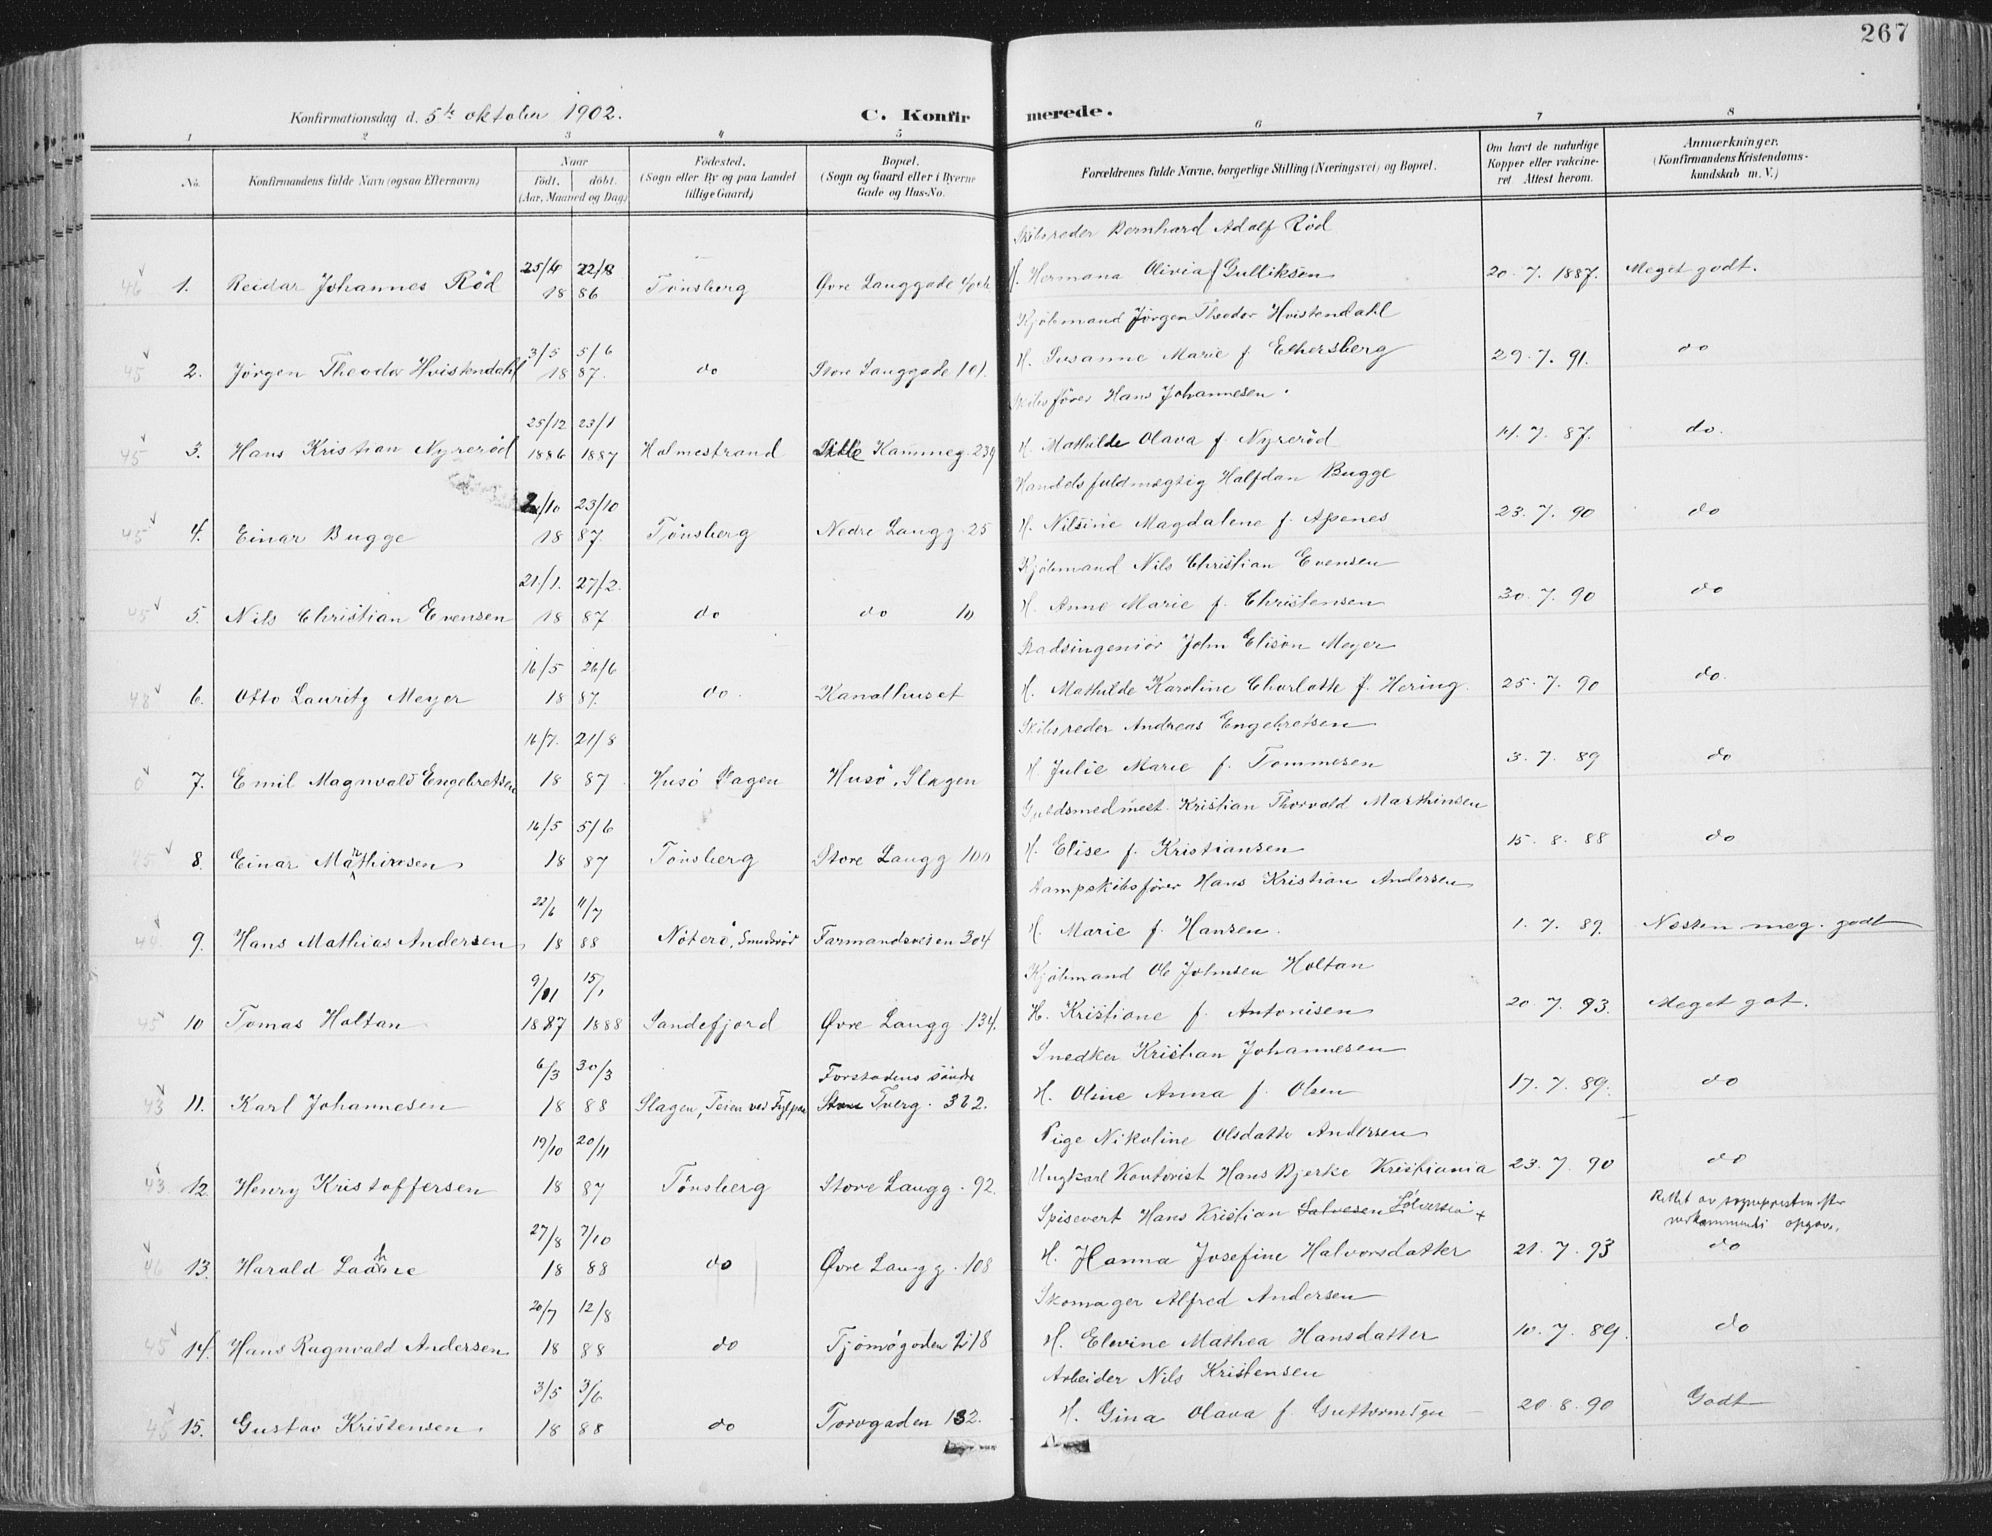 267
Konfirmationsdag d. 5te oktober 1902.
C. Konfirmerede.
1 2 3 4 5 6 7 8
No.
Konfirmandens fulde Navn (ogsaa Efternavn)
Naar
født. døbt.
(Aar, Maaned og Dag)
Fødested.
(Sogn eller By og paa Landet
tillige Gaard)
Bopæl.
(Sogn og Gaard eller i Byerne
Gade og Hus-No.
Forældrenes fulde Navne, borgerlige Stilling (Næringsvei) og Bopæl.
Om havt de naturlige
Kopper eller vakcine-
ret. Attest herom.
Anmærkninger.
(Konfirmandens Kristendoms-
kundskab m. V.)
Skibsreder Bernhard Adolf Rød
1. Reidar Johannes Rød 22/8 18 86 Tønsberg Øvre Langgade H. Hermana Olivia f Gulliksen 20. 7. 1887. Meget godt.
Kjøbmand Jørgen Theodor Hvistendahl
2. Jørgen Theodor Hvistendahl 3/5 5/6 18 87. do Store Langgade 101. H. Susanne Marie f. Ethersberg 29. 7. 91. do
Skibsfører Hans Johannesen.
3. Hans Kristian Nyrerød 25/12 1886 23/1 1887 Holmestrand Lille Kammeg. 239 H. Mathilde Olava f. Nyrerød 14. 7. 87. do.
Handelsfuldmægtig Halfdan Bugge
4. Einar Bugge 23/10 18 87. Tønsberg Nedre Langg. 25 H. Nilsine Magdalene f. Apenes 23. 7. 90 do
Kjøbmand Nils Christian Evensen
5. Nils Christian Evensen 21/1. 27/2. 18 87 do do 10 H. Anne Marie f. Christensen 30. 7. 90 do
Stadsingeniør John Elison Meyer
6. Otto Lauritz Meyer 16/5 26/6 18 87. do. Kanalhuset H. Mathilde Karoline Charlotte f. Hering. 25. 7. 90 do.
Skibsreder Andreas Engebretsen
7. Emil Magnvald Engebretsen 16/7. 21/8 18 87 Husø Slagen Husø, Slagen H. Julie Marie f. Tommesen 3. 7. 89 do
Guldsmedmest. Kristian Thorvald Marthinsen
8. Einar Mathinsen 16/5 5/6 18 87 Tønsberg Store Langg 100 H. Elise f. Kristiansen 15. 8. 88 do
Dampskibsfører Hans Kristian Andersen
9. Hans Mathias Andersen 22/6 11/7 18 88 Nøterø, Smidsrød Farmandsveien 304 H. Marie f. Hansen. 1. 7. 89. Næsten meg. godt
Kjøbmand Ole Johnsen Holtan
10 Tomas Holtan 9/11 1887 15/1 1888 Sandefjord Øvre Langg. 134. H. Kristiane f. Antonisen 20. 7. 93. Meget got.
Snedker Kristian Johannesen
11. Karl Johannesen 6/3 30/3 18 88 Slagen, Teien ved Forstadens søndre Tverg. 322. H. Oline Anna f. Olsen 17. 7. 89. do
Pige Nikoline Olsdatter Andersen
12. Henry Kristoffersen 19/10 20/11 18 87 Tønsberg Store Langg. 92. Ungkarl Kontorist Hans Bjerke Kristiania 23. 7. 90 do
Spisevert Hans Kristian Salvesen Sølversen +
Rettet av sogneprest efter
verkommende opgave.
13. Harald Laane 27/8 7/10 18 88 do Øvre Langg. 108 H. Hanna Josefine Halvorsdatter 21. 7. 93 do
Skomager Alfred Andersen
14. Hans Ragnvald Andersen 20/7 12/8 18 88 do Tjømøgaden 218 H. Elevine Mathea Hansdatter 10. 7. 89. do
Arbeider Nils Kristensen
15. Gustav Kristensen. 3/5 3/6 18 88 do Torvgaden 132. H. Gina Olava f. Guttormsen 20. 8. 90 Godt